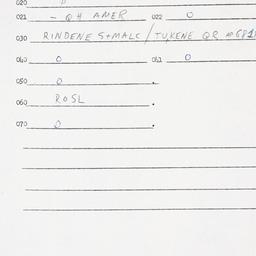 020
021 - QH AMER 022 0
030 RINDENE S+MALC / TUKENE QR
040 0 041 0
050 0
060 ROSL
070 0